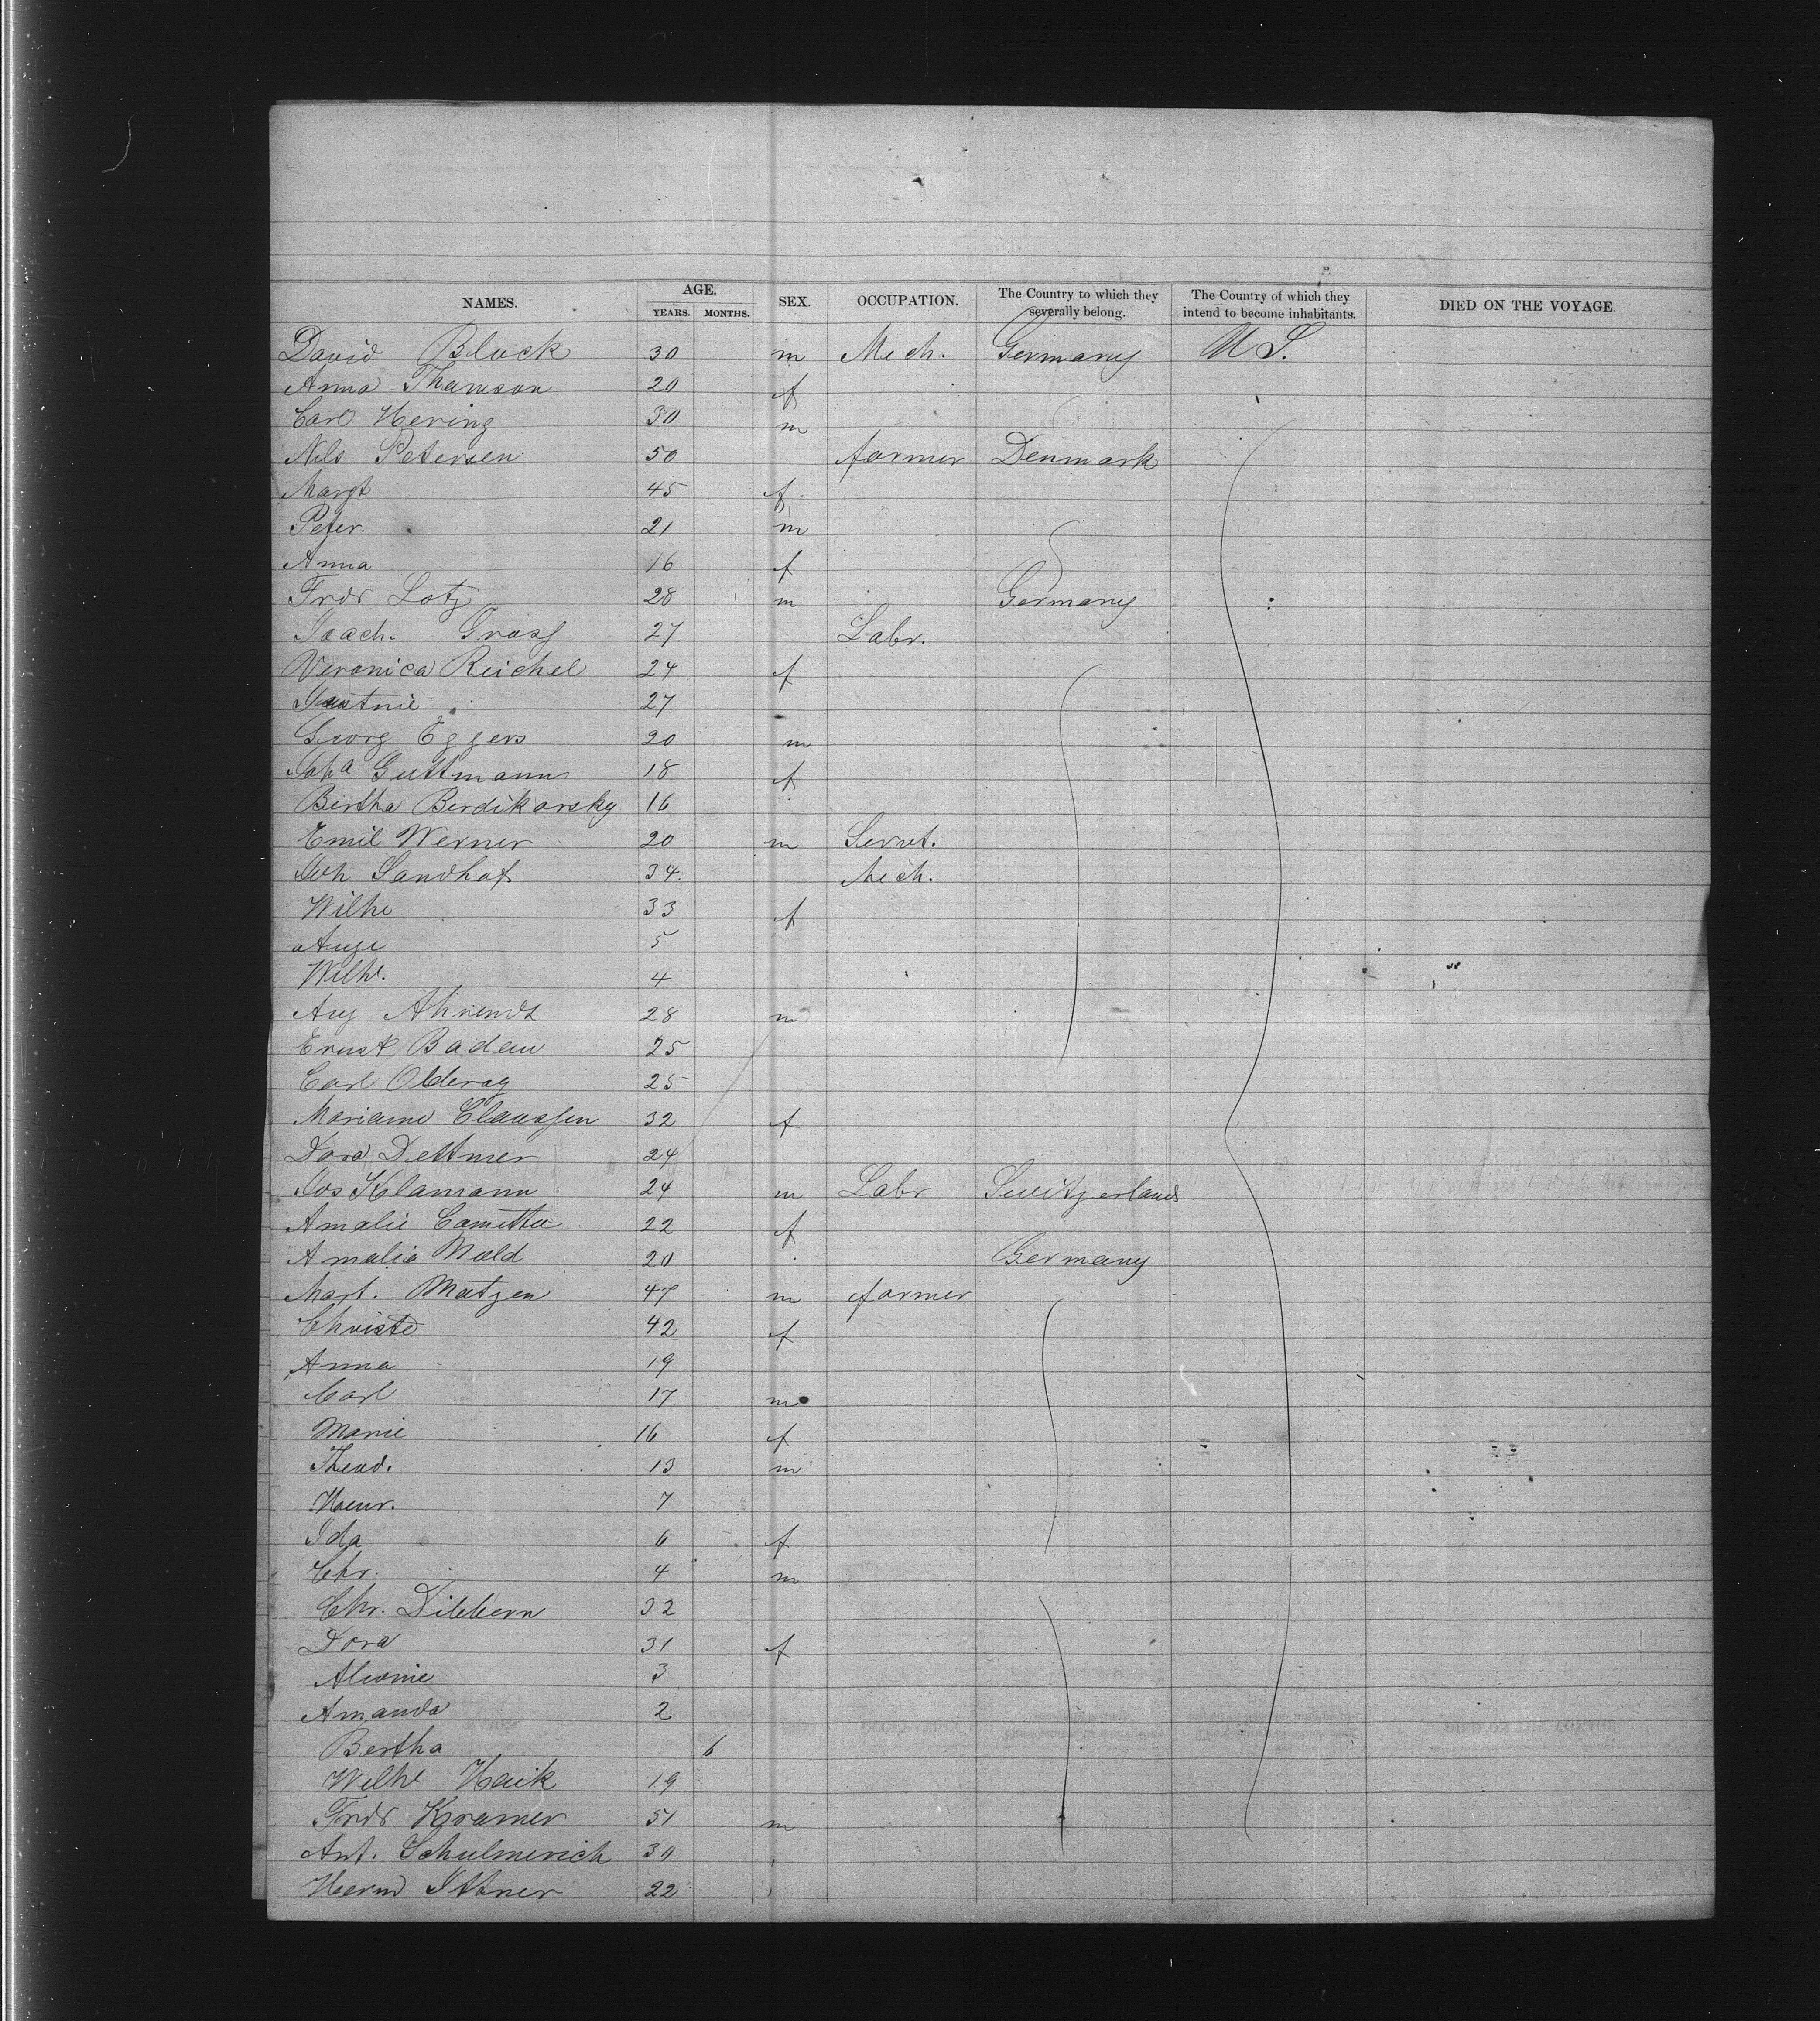 NAMES. AGE. YEARS. MONTHS. SEX. OCCUPATION. The Country to which they severally belong. The Country of which they intend to become inhabitants. DIED ON THE VOYAGE.
David Block 30 m Mech. Germany U S.
Anna Thamson 20 f
Carl Hering 30 m
Nils Petersen 50 farmer Denmark
Margt 45 f
Peter. 21 m
Anna 16 f
Fridr Lotz 28 m Germany
Joach. Grass 27 Labr.
Veronica Reichel 24 f
27
Georg Eggers 20 m
Joha Guttmann 18 f
Bertha Berdikarsky 16
Emil Werner 20 m Servt.
Joh Sandhof 34 Mech.
Wilhe 33 f
Auge 5
Wilhe. 4
Aug Ahrends 28 m
Ernst Badew 25
Carl Olderog 25
Mariane Claassen 32 f
Dora Dettmer 24
Jos Klamann 24 m Labr Switzerland
Amalie 22 f
Amalia Mald 20 Germany
Mart. Matzen 47 m farmer
Christe 42 f
Anna 19
Carl 17 m
Marie 16 f
Theod. 13 m
Heinr. 7
Ida 6 f
Chr. 4 m
Chr. Dibbern 32
Dora 31 f
Alwine 3
Amanda 2
Bertha 6
Wilhe Hauk 19
Fridr Kramer 51 m
Ant. Schulmerich 30
Herm Ittner 22